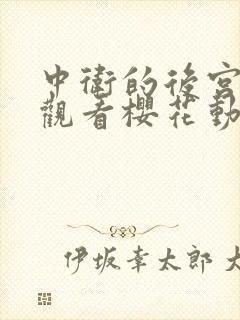 中衛的後宮
觀看櫻花動
伊坂幸太郎 大